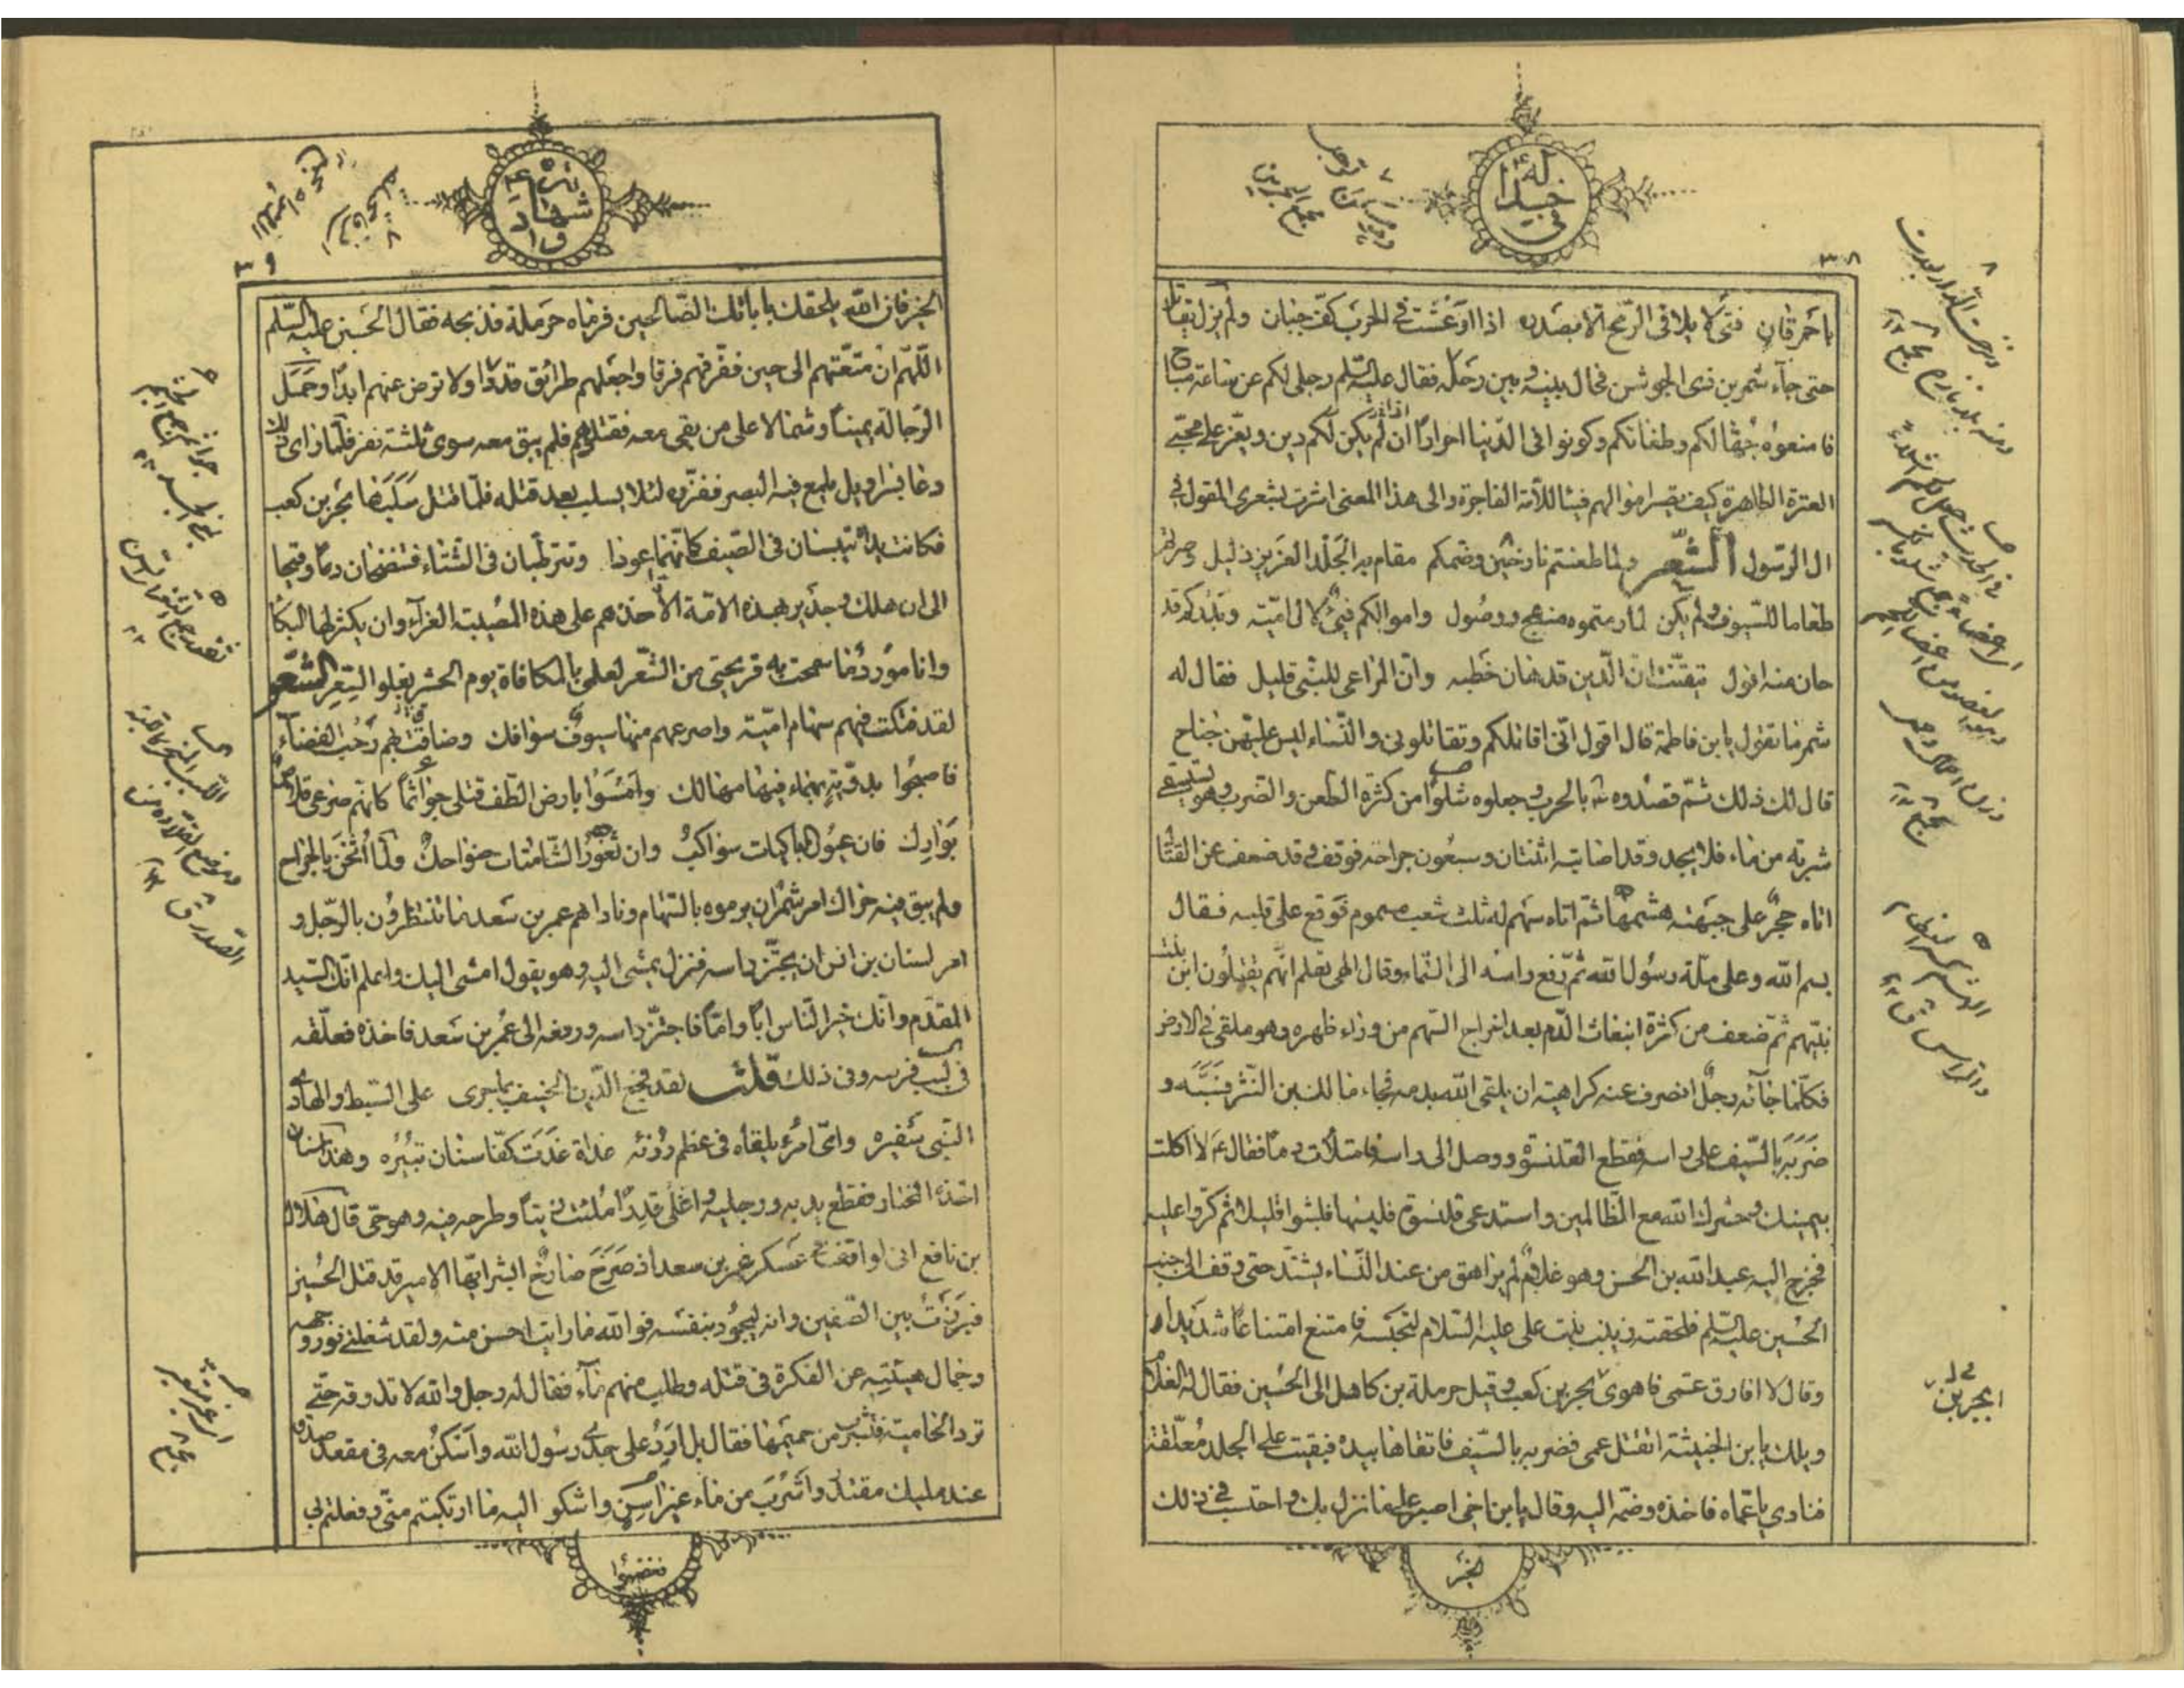 في جداله
٣٨
باحمرقان فتى لا يلاقى الرّمح الّا بصدره اذا ارعشت فى الحرب كفّ جبان ولم يزل يقاتل
حتى جآء شمر بن ذى الجوشن فحال بينه و بين رحله فقال عليه السّلم رحلى لكم عن ساعة مباح
فامنعوه جهّالكم وطغاتكم وكونوا فى الدّنيا احرارًا ان لم يكن لكم دين ويعزّ على محبّى
العترة الطاهرة كيف اموالهم فيئا للأمّة الفاجرة والى هذا المعنى اشرت بشعرى المقول فى
ال الرّسول الشّعر ولما طعنتم نازحين وضمكم مقام به الجلد العزيز ذليل وصرتم
طعاما للسّيوف ولم يكن لما رمتموه منهج ووصُول واموالكم فيئٌ لال اميّة وبدركم قد
حان منه افول تيقّنت انّ الدّين قد هان خطبه وانّ المراعى للنّبى قليل فقال له
شمر ما تقول يا بن فاطمة قال اقول انّى اقاتلكم وتقاتلونى والنّساء ليس عليهنّ جناح
قال لك ذلك ثمّ قصدوه ع بالحرب وجعلوه شلوًا من كثرة الطّعن والضّرب وهو يستسقى
شربة من ماء فلا يجد وقد اصابته اثنتان وسبعون جراحة فوقف وقد ضعف عن القتال
اتاه حجرٌ على جبهته هشمها ثمّ اتاه سهم له ثلث شعب مسموم فوقع على قلبه فقال
بسم الله وعلى ملّة رسول الله ثمّ رفع راسه الى السّماء وقال الهى تعلم انّهم يقتلون ابن بنت
نبيّهم ثمّ ضعف من كثرة انبعاث الدّم بعد اخراج السّهم من وراء ظهره وهو ملقى فى الارض
فكلّما جآئه رجلٌ انصرف عنه كراهية ان يلقى الله بدمه فجاء مالك بن النّسر فسبّه و
ضربه بالسّيف على راسه فقطع القلنسوة ووصل الى راسه فامتلأت دمًا فقال ع لا اكلت
بيمينك وحشرك الله مع الظّالمين واستدعى قلنسوة فلبسها فلبثوا قليلا ثم كرّوا عليه
فخرج اليه عبد الله بن الحسن وهو غلامٌ لم يراهق من عند النّساء يشتدّ حتى وقف الى جنب
الحُسين عليه السّلم فلحقته زينب بنت على عليه السّلام لتحبسه فامتنع امتناعًا شديدا
وقال لا افارق عمّى فاهوى بحر بن كعب وقيل حرملة بن كاهل الى الحُسين فقال له الغلام
ويلك يا بن الخبيثة اتقتل عمى فضربه بالسّيف فاتقاها بيده فبقيت على الجلد مُعلّقة
فنادى يا عمّاه فاخذه وضمّه اليه وقال يا بن اخى اصبر على ما نزل بك واحتسب فى ذلك
الخير
ابجر بن
شهادته
٣٩
الخير فان الله يلحقك بآبائك الصّالحين فرماه حرملة فذبحه فقال الحسين عليه السّلم
اللّهمّ ان متّعتهم الى حين ففرّقهم فرقا واجعلهم طرائق قددًا ولا ترض عنهم ابدًا وحمل
الرّجالة يمينًا وشمالا على من بقى معه فقتلوهم فلم يبق معه سوى ثلثة نفر فلمّا راى ذلك
دعا بسراويل يلمع فيه البصر ففزره لئلا يسلب بعد قتله فلمّا قتل سلبها بحر بن كعب
فكانت يداه تيبسان فى الصّيف كانّهما عودا وتترطّبان فى الشّتاء فتنضخان دمًا وقيحا
الى ان هلك وجدير بهذه الامّة الأخذ هم على هذه المصيبة الغرآء وان يكثر لها البكا
وانا مورد ما سمحت به قريحتى من الشّعر لعلمى بالمكافاة يوم الحشر بغلو السّعر الشّعر
لقد فتكت فيهم سهام اميّة واصرعهم منها سيوفٌ سوافك وضاقت بهم رحب الفضآء
فاصبحوا بدوّيّة بهماء فيها مهالك وامسوا بارض الطّف قتلى جواثمًا كانهم صرعى قلاص
بوارك فان عيُون الباكيات سواكبٌ وان ثغور الشّامتات ضواحك ولمّا اُثخن بالجراح
ولم يبق فيه حراك امر شمر ان يرموه بالسّهام وناداهم عمر بن سعد ما تنتظرون بالرّجل و
امر لسنان بن انس ان يحتزّ راسه فنزل يمشى اليه وهو يقول امشى اليك واعلم انّك السّيد
المقدّم وانّك خير النّاس ابًا وامًّا فاجتزّ راسه ورفعه الى عُمر بن سعد فاخذه فعلّقه
فى لبب فرسه وفى ذلك قلتُ لقد فجع الدّين الحنيف بما جرى على السّبط والهادى
النّبى بثفيره واىّ امرء يلقاه فى عظم رزئه غداة غدت كفّا سنان تبيره وهذا سنان
اخذه المختار فقطع يديه ورجليه واغلى قدرًا مُلئت زيتًا وطرحه فيه وهو حىّ قال هلال
بن نافع انى لواقف مع عسكر عمر بن سعد اذ صرخ صارخٌ ابشر ايّها الامير قد قتل الحُسين
فبرزتُ بين الصّفين وانه ليجُود بنفسه فوالله ما رايت احسن منه ولقد شغلنى نور وجهه
وجمال هيئته عن الفكرة فى قتله وطلب منهم ماء فقال له رجل والله لا تذوقه حتى
ترد الحامية فتشرب من حميمها فقال بل ارد على جدّى رسول الله واسكن معه فى مقعد صدق
عند مليك مقتدر واشرب من ماء غير اسن واشكو اليه ما ارتكبتم منّى وفعلتم بى
فغضبوا